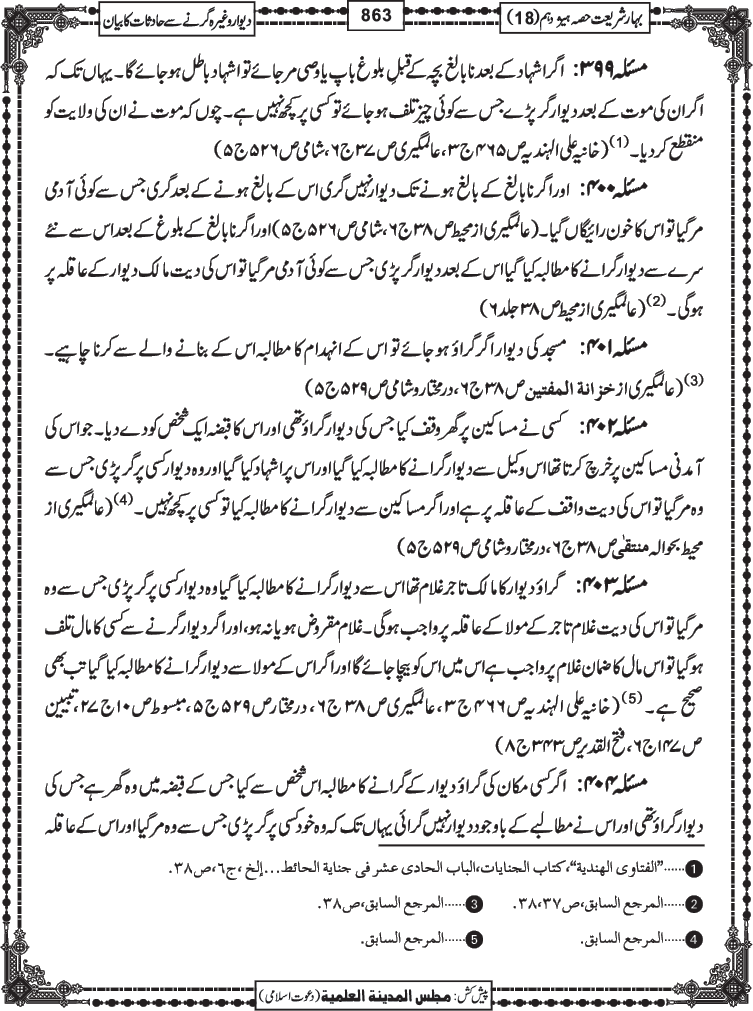 بہار شریعت حصہ ہیژدہم (18)
863
دیوار وغیرہ گرنے سے حادثات کا بیان
مسئلہ ۳۹۹: اگر اشہاد کے بعد نابالغ بچہ کے قبلِ بلوغ باپ یا وصی مر جائے تو اشہاد باطل ہو جائے گا۔ یہاں تک کہ
اگر ان کی موت کے بعد دیوار گر پڑے جس سے کوئی چیز تلف ہو جائے تو کسی پر کچھ نہیں ہے۔ چوں کہ موت نے ان کی ولایت کو
منقطع کر دیا۔ (1) (خانیہ علی الہندیہ ص ۴۶۵ ج ۳، عالمگیری ص ۳۷ ج ۶، شامی ص ۵۲۶ ج ۵)
مسئلہ ۴۰۰: اور اگر نابالغ کے بالغ ہونے تک دیوار نہیں گری اس کے بالغ ہونے کے بعد گری جس سے کوئی آدمی
مر گیا تو اس کا خون رائیگاں گیا۔ (عالمگیری از محیط ص ۳۸ ج ۶، شامی ص ۵۲۶ ج ۵) اور اگر نابالغ کے بلوغ کے بعد اس سے نئے
سرے سے دیوار گرانے کا مطالبہ کیا گیا اس کے بعد دیوار گر پڑی جس سے کوئی آدمی مر گیا تو اس کی دیت مالک دیوار کے عاقلہ پر
ہوگی۔ (2) (عالمگیری از محیط ص ۳۸ جلد ۶)
مسئلہ ۴۰۱: مسجد کی دیوار اگر گراؤ ہو جائے تو اس کے انہدام کا مطالبہ اس کے بنانے والے سے کرنا چاہیے۔
(3) (عالمگیری از خزانة المفتین ص ۳۸ ج ۶، درمختار و شامی ص ۵۲۹ ج ۵)
مسئلہ ۴۰۲: کسی نے مساکین پر گھر وقف کیا جس کی دیوار گراؤ تھی اور اس کا قبضہ ایک شخص کو دے دیا۔ جو اس کی
آمدنی مساکین پر خرچ کرتا تھا اس وکیل سے دیوار گرانے کا مطالبہ کیا گیا اور اس پر اشہاد کیا گیا اور وہ دیوار کسی پر گر پڑی جس سے
وہ مر گیا تو اس کی دیت واقف کے عاقلہ پر ہے اور اگر مساکین سے دیوار گرانے کا مطالبہ کیا تو کسی پر کچھ نہیں۔ (4) (عالمگیری از
محیط بحوالہ منتقیٰ ص ۳۸ ج ۶، درمختار و شامی ص ۵۲۹ ج ۵)
مسئلہ ۴۰۳: گراؤ دیوار کا مالک تاجر غلام تھا اس سے دیوار گرانے کا مطالبہ کیا گیا وہ دیوار کسی پر گر پڑی جس سے وہ
مر گیا تو اس کی دیت غلام تاجر کے مولا کے عاقلہ پر واجب ہوگی۔ غلام مقروض ہو یا نہ ہو، اور اگر دیوار گرنے سے کسی کا مال تلف
ہو گیا تو اس مال کا ضمان غلام پر واجب ہے اس میں اس کو بیچا جائے گا اور اگر اس کے مولا سے دیوار گرانے کا مطالبہ کیا گیا تب بھی
صحیح ہے۔ (5) (خانیہ علی الہندیہ ص ۴۶۶ ج ۳، عالمگیری ص ۳۸ ج ۶، درمختار ص ۵۲۹ ج ۵، مبسوط ص ۱۰ ج ۲۷، تبیین
ص ۱۴۷ ج ۶، فتح القدیر ص ۳۴۳ ج ۸)
مسئلہ ۴۰۴: اگر کسی مکان کی گراؤ دیوار کے گرانے کا مطالبہ اس شخص سے کیا جس کے قبضہ میں وہ گھر ہے جس کی
دیوار گراؤ تھی اور اس نے مطالبے کے باوجود دیوار نہیں گرائی یہاں تک کہ وہ خود کسی پر گر پڑی جس سے وہ مر گیا اور اس کے عاقلہ
1......"الفتاوى الهندية"، كتاب الجنايات، الباب الحادى عشر فى جناية الحائط...إلخ، ج٦، ص٣٨.
2......المرجع السابق، ص٣٧، ٣٨. 3......المرجع السابق، ص٣٨.
4......المرجع السابق. 5......المرجع السابق.
پیش کش: مجلس المدينة العلمية (دعوت اسلامی)